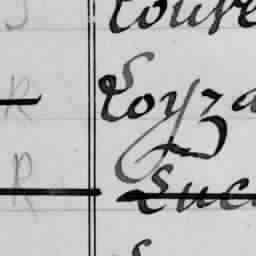 Louve
R Loyza
R Luc